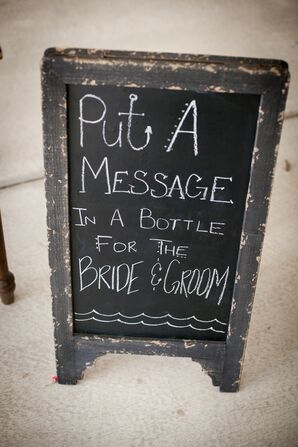 Put A
MESSAGE
IN A BOTTLE
FOR THE
BRIDE & GROOM